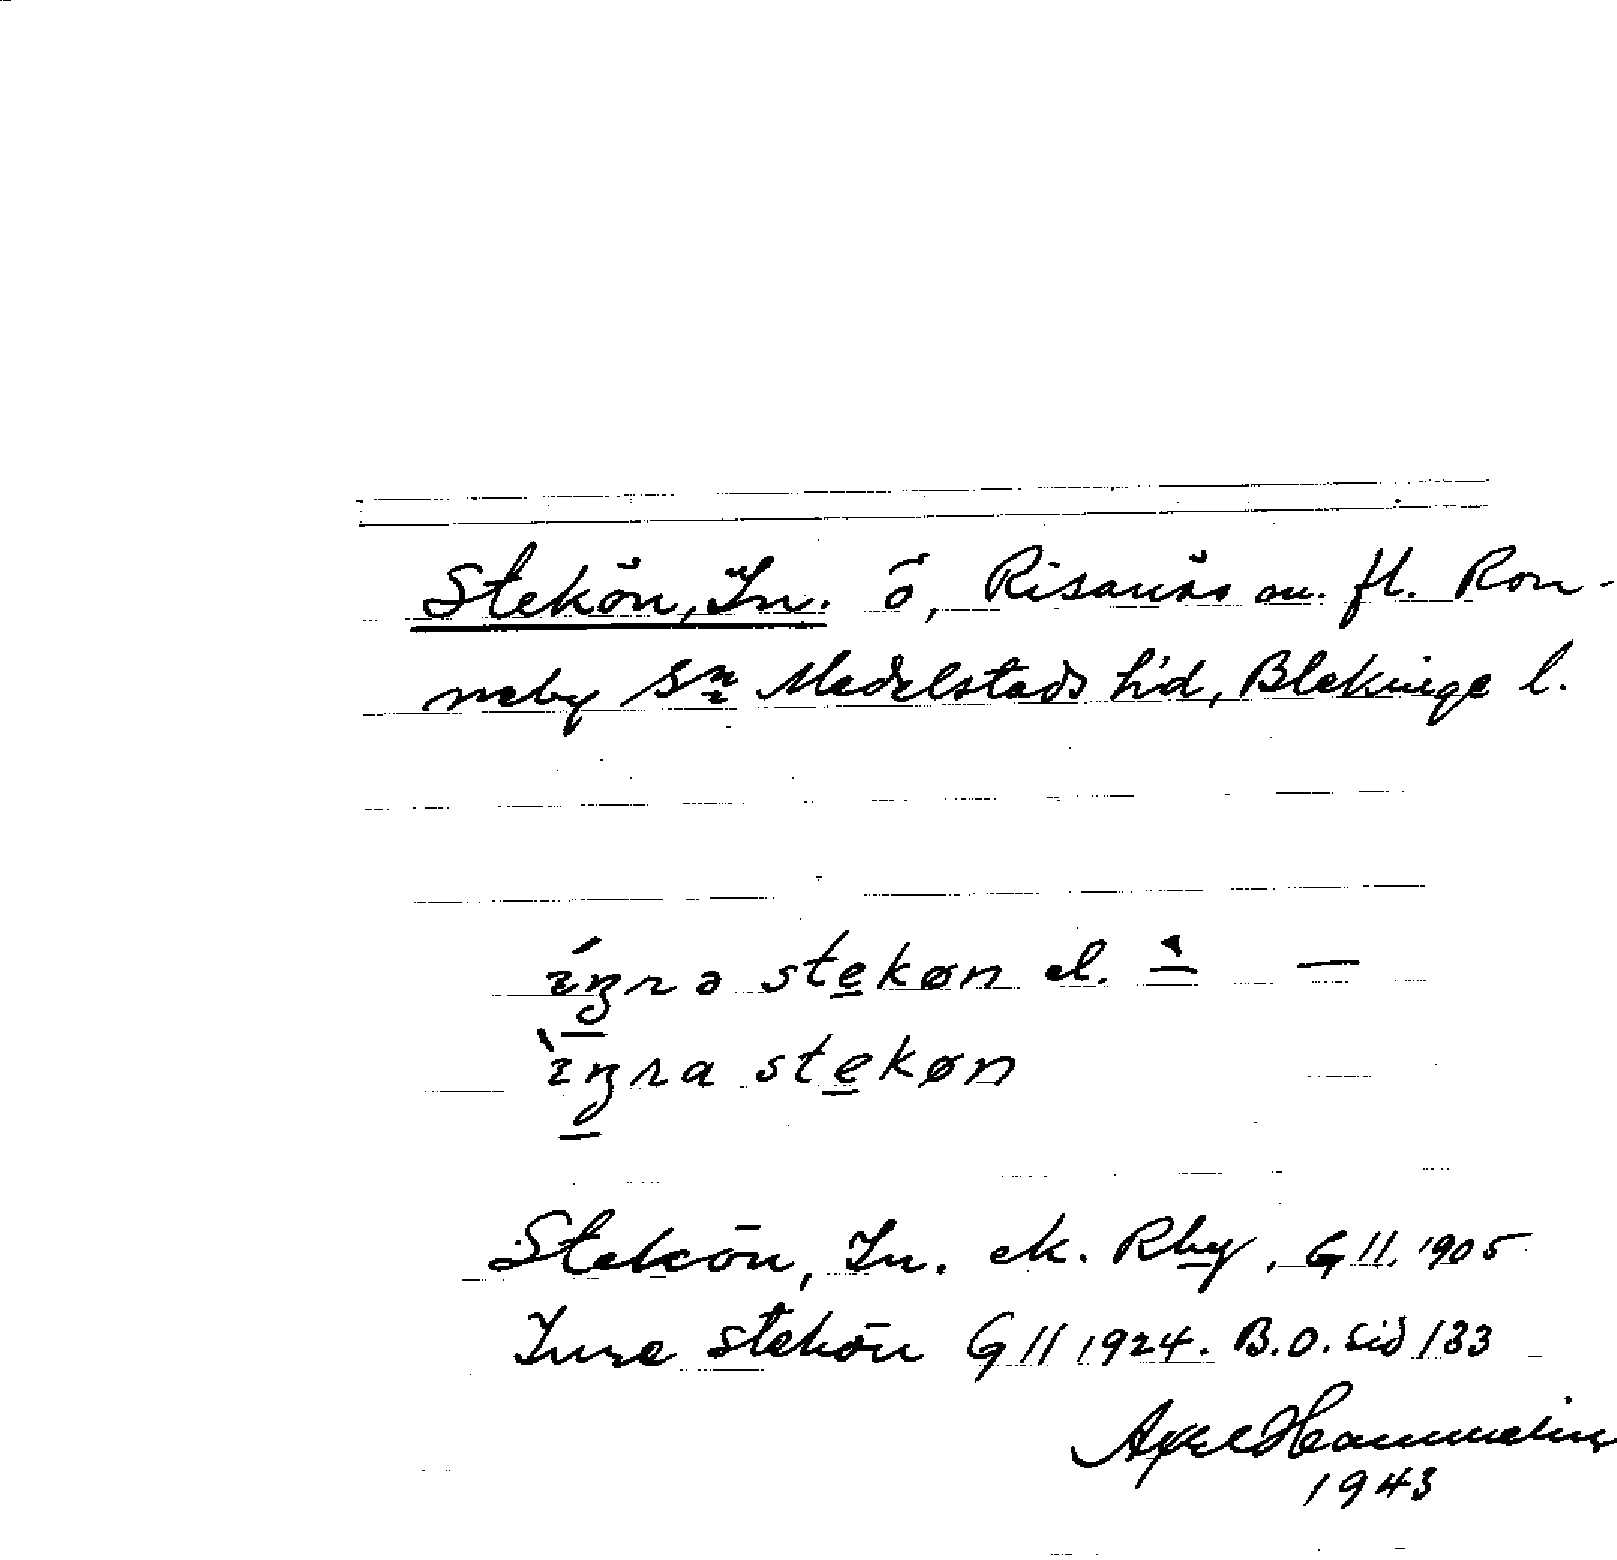 Stekön, In. ö, Risanäs m. fl. Ron-
neby sn Medelstads hd, Blekinge l.
stekøn el.
stekøn
Stekön, In. ek. Rby, G II. 1905
Inre stekön G II 1924. B.O. sid 133
Axel Hammelin
1943